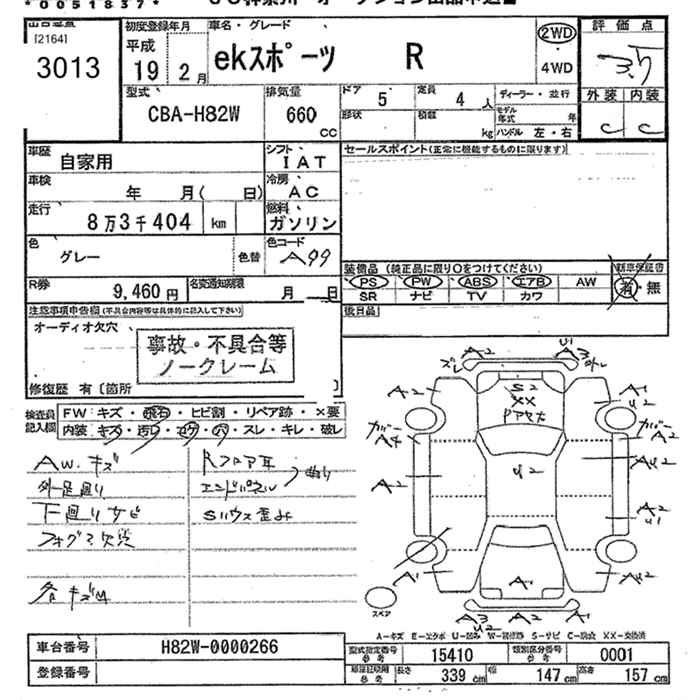 *0051837*
[2164]
3013
初度登録年月
平成
19 2月
車名・グレード
ekスポーツ R
2WD
・
4WD
評価点
3.5
外装 内装
C C
型式
CBA-H82W
排気量
660 cc
ドア
5
定員
4人
形状
積載
kg
ディーラー・並行
モデル年式 年
ハンドル 左・右
車歴
自家用
シフト
IAT
車検
年 月( 日)
冷房
AC
走行
8万3千404 km
燃料
ガソリン
色
グレー
色替
色コード
A99
R券
9,460円
名変通知期限
月 日
セールスポイント(正常に機能するものに限ります)
装備品 (純正品に限り○をつけてください)
新車保証書
PS PW ABS エアB AW
有・無
SR ナビ TV カワ
後日品
注意事項申告欄(不具合内容等は具体的に記入して下さい)
オーディオ欠穴
事故・不具合等
ノークレーム
修復歴 有〔箇所
検査員記入欄
FW:キズ・飛石・ヒビ割・リペア跡・×要
内装:キズ・汚レ・コゲ・穴・スレ・キレ・破レ
AW.キズ
外廻り
下廻りサビ
フォグマ欠品
各キズM
Rフロア耳
エンドパネル
曲り
Sハウス歪み
A2 U1 A3
ズレ
A2 A1 U2
S2
XX
ガバー
A4
A2
A2
U2
AU2
A2
U1
A1 A1 AU2
スペア
A3 A2 A1
U2
A-キズ E-エクボ U-凹み W-補修跡 S-サビ C-腐食 XX-交換済
車台番号
H82W-0000266
登録番号
型式指定番号
参考
15410
類別区分番号
参考
0001
参考
長さ
339 cm
幅
147 cm
高さ
157 cm